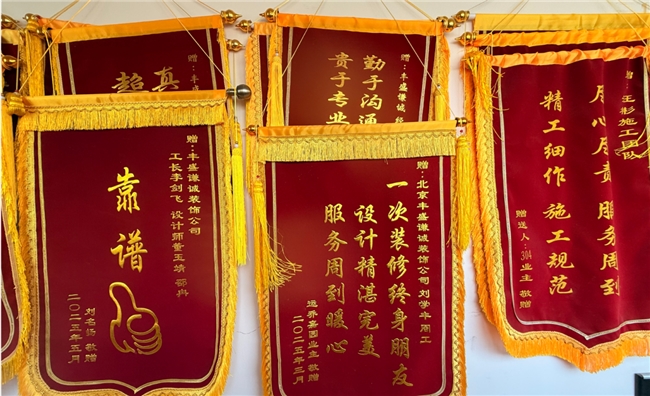 赠：丰盛谦诚装饰公司
工长李剑飞 设计师董玉靖
靠谱
刘名扬 敬赠
二〇二五年五月
赠：丰盛
超
真
赠：丰盛谦诚
勤于沟通
贵于专业
赠：北京丰盛谦诚装饰公司 刘学牛 周工
一次装修终身朋友
设计精湛完美
服务周到暖心
嘉园业主 敬赠
二〇二五年三月
王彬施工团队
用心尽责 服务周到
精工细作 施工规范
赠送人：304业主 敬赠